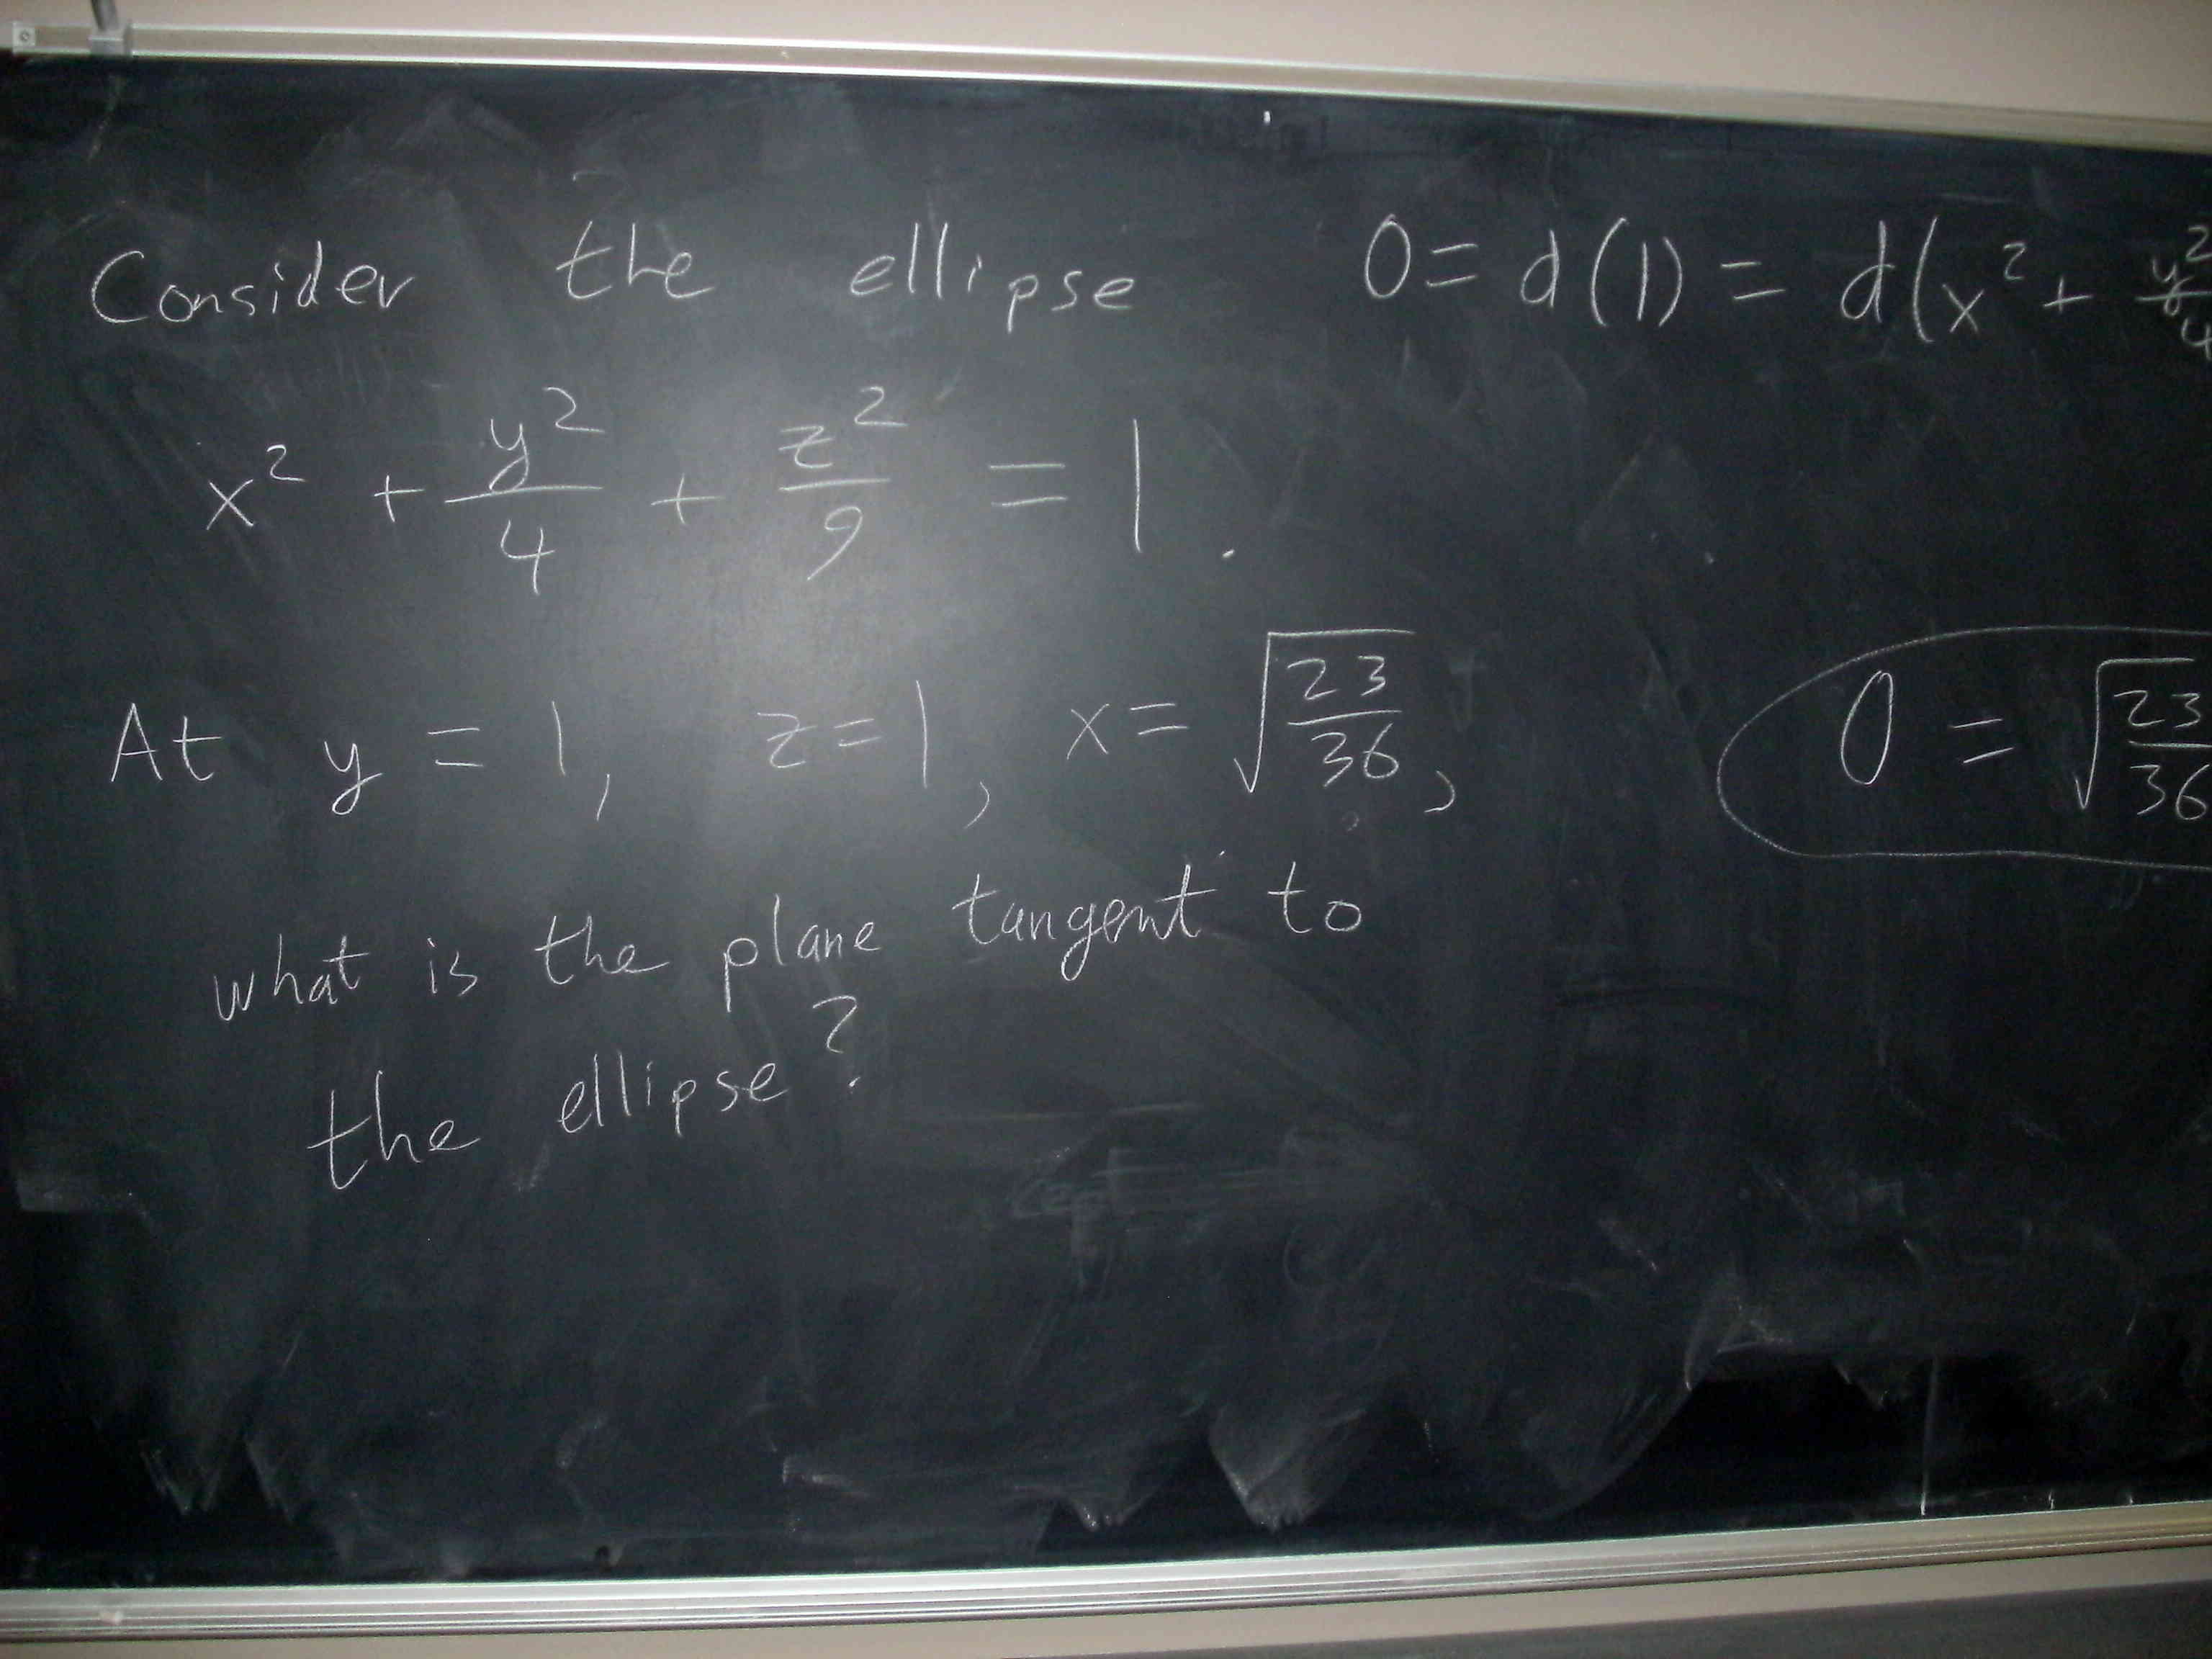 Consider the ellipse
x² + y²/4 + z²/9 = 1.
At y = 1, z = 1, x = √(23/36),
what is the plane tangent to
the ellipse?
0 = d(1) = d(x² + y²/4
0 = √(23/36